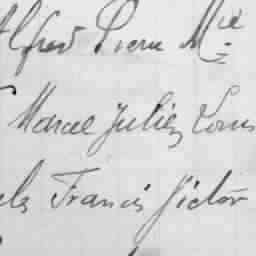 Alfred Pierre Mie
Marcel Julien Louis
els Francis Victor